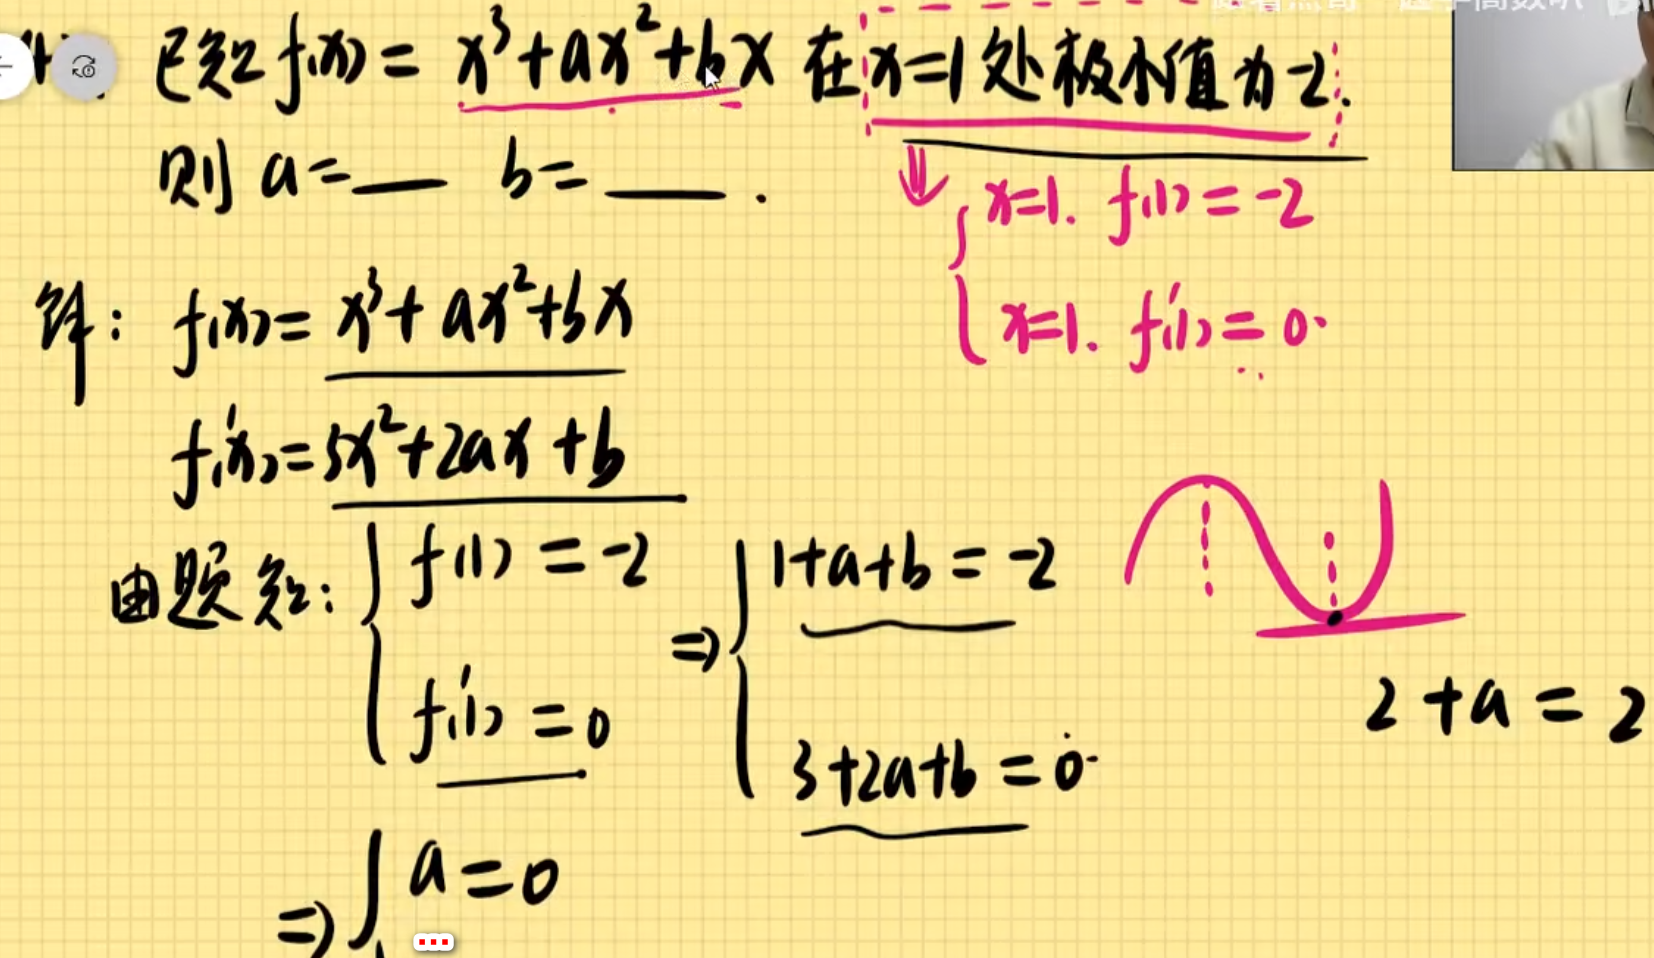 已知 f(x) = x³+ax²+bx 在x=1处极小值为-2.
则 a=___ b=____.
x=1. f(1)=-2
x=1. f'(1)=0.
解: f(x)=x³+ax²+bx
f'(x)=3x²+2ax+b
由题知: { f(1)=-2
f'(1)=0
⇒ { 1+a+b=-2
3+2a+b=0
2+a=2
⇒ { a=0